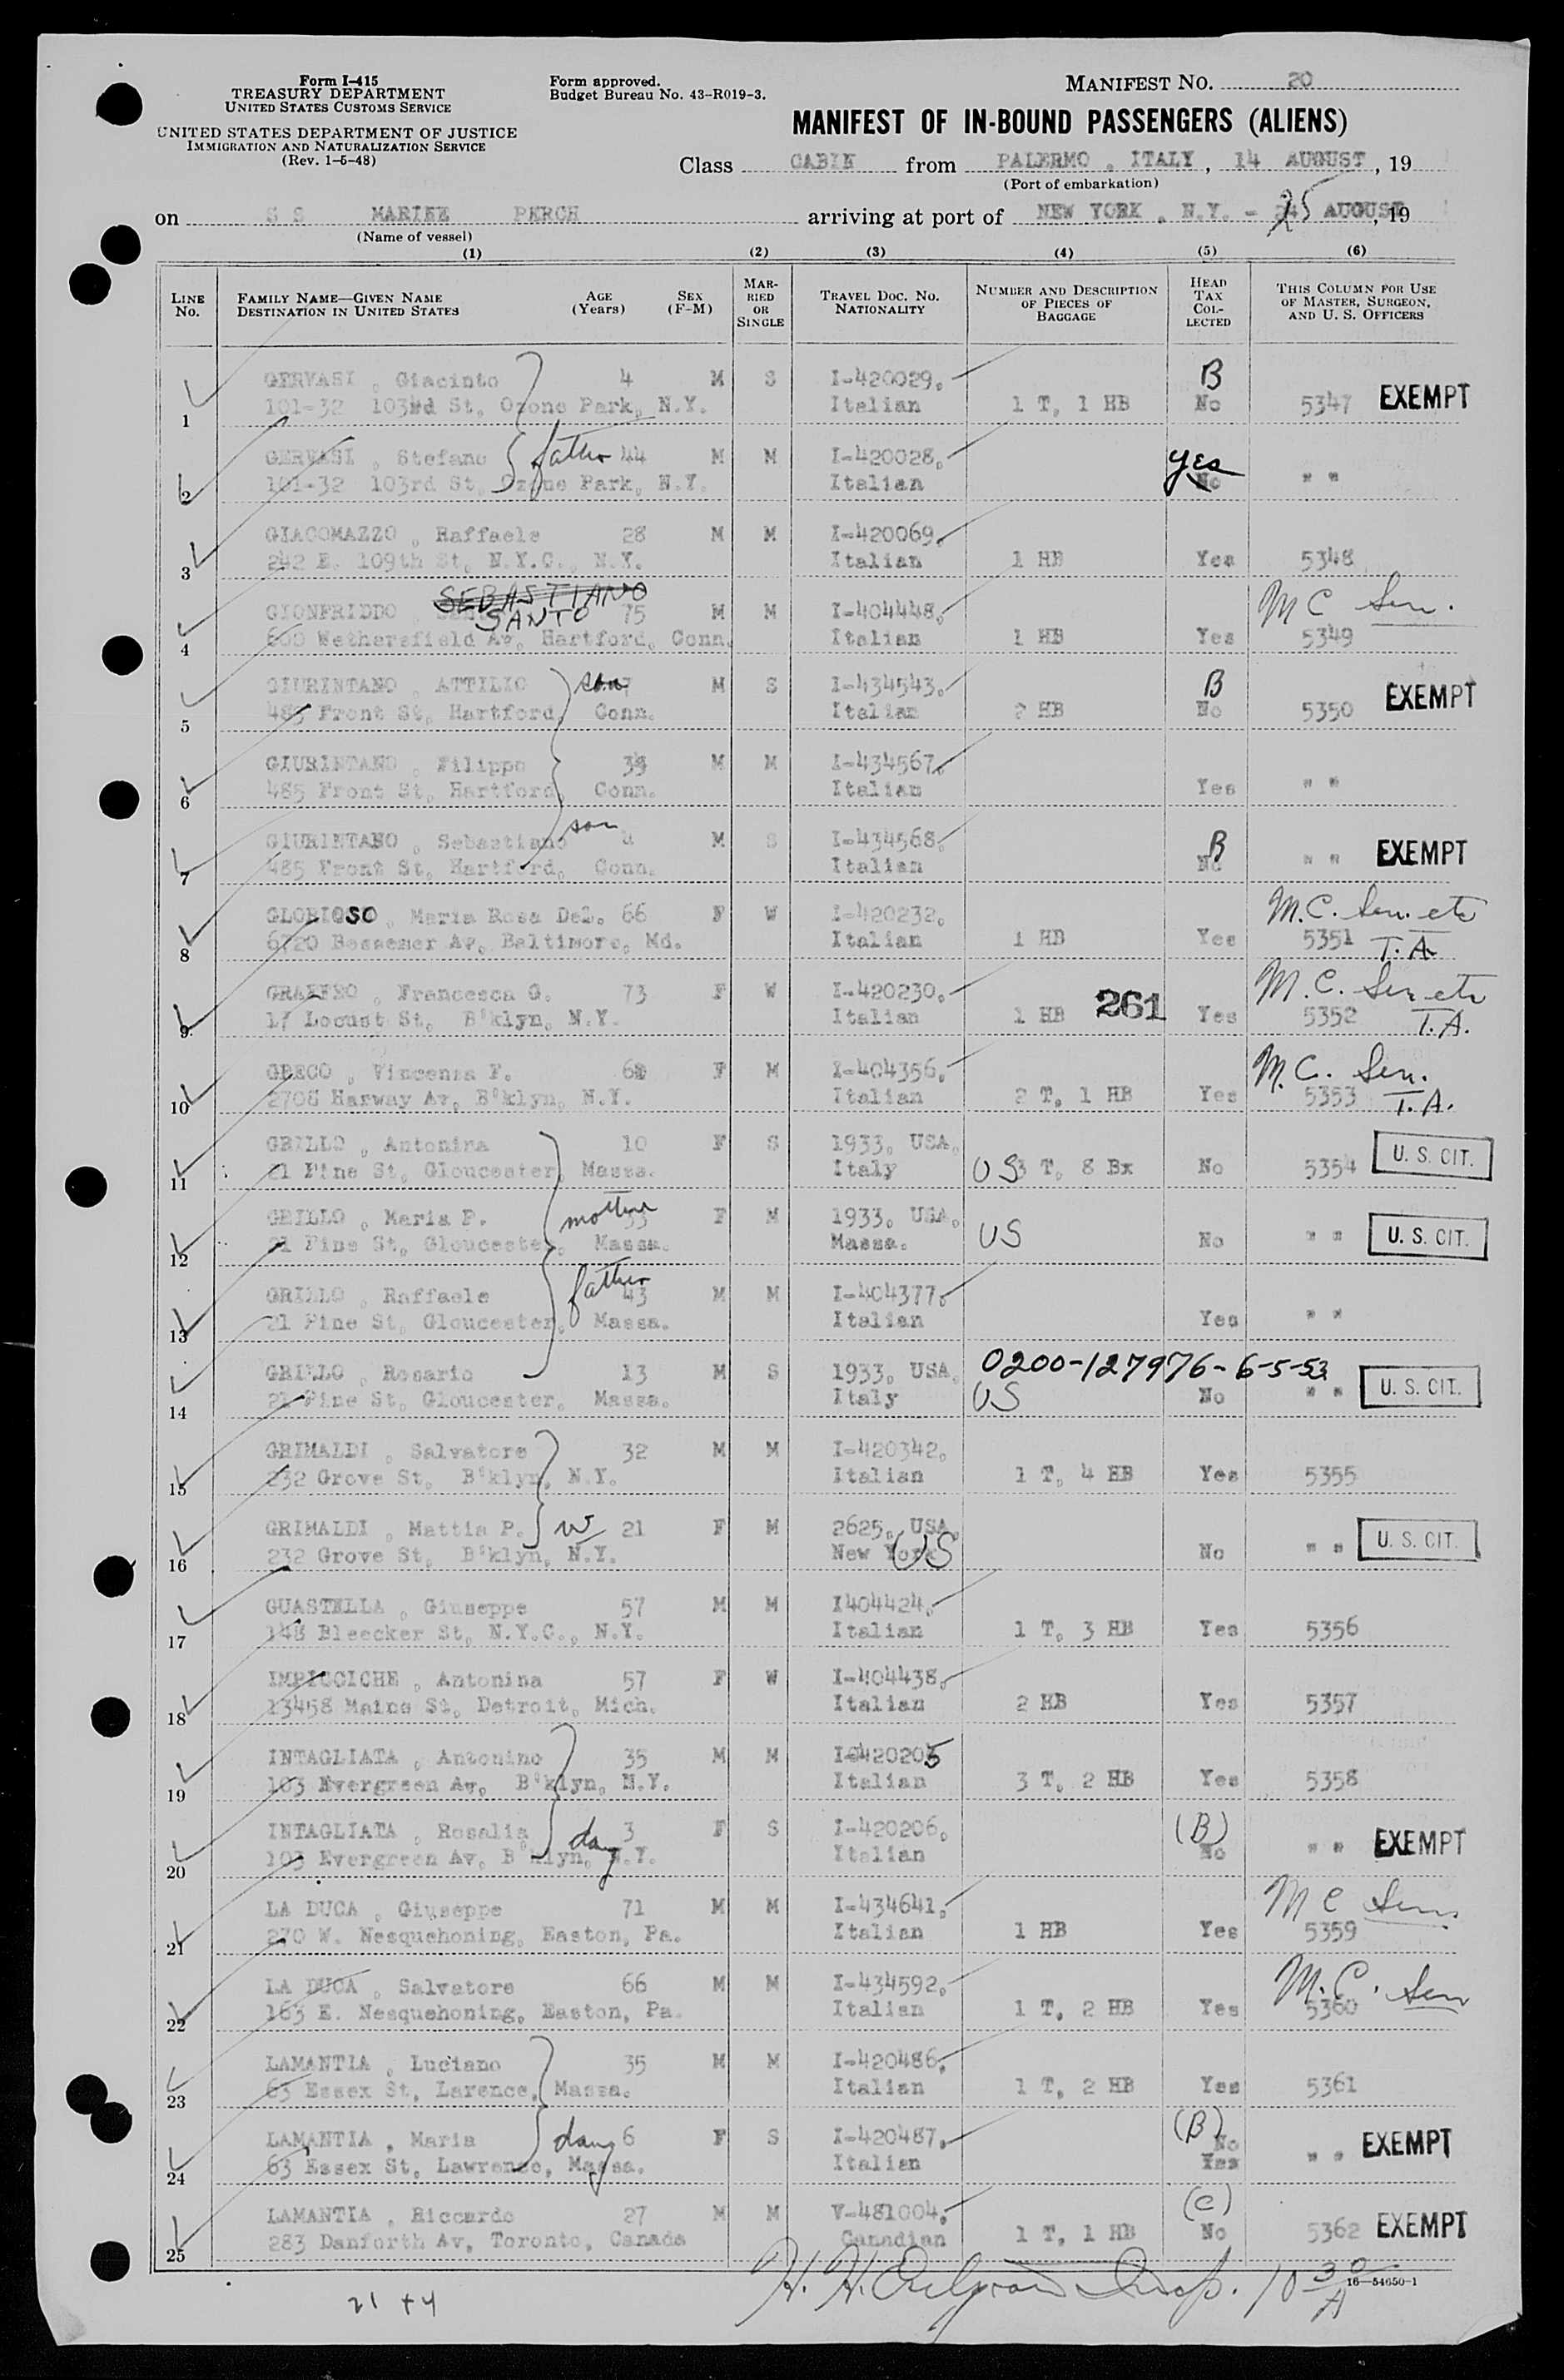 Form I-415
TREASURY DEPARTMENT
UNITED STATES CUSTOMS SERVICE
UNITED STATES DEPARTMENT OF JUSTICE
IMMIGRATION AND NATURALIZATION SERVICE
(Rev. 1-5-48)
Form approved.
Budget Bureau No. 43-R019-3.
MANIFEST NO. 20
MANIFEST OF IN-BOUND PASSENGERS (ALIENS)
Class CABIN from PALERMO, ITALY, 14 AUGUST, 19
(Port of embarkation)
on S S MARINE PERCH arriving at port of NEW YORK, N.Y. - 25 AUGUST, 19
(Name of vessel)
(1) (2) (3) (4) (5) (6)
LINE No. FAMILY NAME—GIVEN NAME DESTINATION IN UNITED STATES AGE (Years) SEX (F-M) MARRIED OR SINGLE TRAVEL DOC. NO. NATIONALITY NUMBER AND DESCRIPTION OF PIECES OF BAGGAGE HEAD TAX COLLECTED THIS COLUMN FOR USE OF MASTER, SURGEON, AND U. S. OFFICERS
GERVASI, Giacinto 4 M S I-420029. B
1 101-32 103rd St, Ozone Park, N.Y. Italian 1 T, 1 HB No 5347 EXEMPT
GERVASI, Stefano father 44 M M I-420028. yes
2 101-32 103rd St, Ozone Park, N.Y. Italian No " "
GIACOMAZZO, Raffaele 28 M M I-420069.
3 242 E. 109th St, N.Y.C., N.Y. Italian 1 HB Yes 5348
SEBASTIANO
GIONFRIDDO, SANTO 75 M M I-404448. MC Sen.
4 600 Wethersfield Av, Hartford, Conn. Italian 1 HB Yes 5349
GIURINTANO, ATTILIO son 7 M S I-434543. B
5 485 Front St, Hartford, Conn. Italian 2 HB No 5350 EXEMPT
GIURINTANO, Filippo 39 M M I-434567.
6 485 Front St, Hartford, Conn. Italian Yes " "
GIURINTANO, Sebastiano son 4 M S I-434568. B
7 485 Front St, Hartford, Conn. Italian No " " EXEMPT
GLORIOSO, Maria Rosa Del. 66 F W I-420232. M.C. Sen. etc
8 6720 Bessemer Av, Baltimore, Md. Italian 1 HB Yes 5351 T.A
GRAFFEO, Francesca G. 73 F W I-420230. M.C. Sen etc
9 17 Locust St, B'klyn, N.Y. Italian 1 HB 261 Yes 5352 T.A.
GRECO, Vincenza F. F M I-404356. M.C. Sen.
10 2708 Harway Av, B'klyn, N.Y. Italian 2 T, 1 HB Yes 5353 T.A.
GRILLO, Antonina 10 F S 1933, USA,
11 21 Pine St, Gloucester, Massa. Italy US 3 T, 8 Bx No 5354 U. S. CIT.
GRILLO, Maria P. mother 33 F M 1933, USA,
12 21 Pine St, Gloucester, Massa. Massa. US No " " U. S. CIT.
GRILLO, Raffaele father 43 M M I-404377.
13 21 Pine St, Gloucester, Massa. Italian Yes " "
GRILLO, Rosario 13 M S 1933, USA, 0200-127976-6-5-53
14 21 Pine St, Gloucester, Massa. Italy US No " " U. S. CIT.
GRIMALDI, Salvatore 32 M M I-420342.
15 232 Grove St, B'klyn, N.Y. Italian 1 T, 4 HB Yes 5355
GRIMALDI, Mattia P. W 21 F M 2625, USA,
16 232 Grove St, B'klyn, N.Y. New York US No " " U. S. CIT.
GUASTELLA, Giuseppe 57 M M I404424.
17 148 Bleecker St, N.Y.C., N.Y. Italian 1 T, 3 HB Yes 5356
IMPICCICHE, Antonina 57 F W I-404438.
18 13458 Maine St, Detroit, Mich. Italian 2 HB Yes 5357
INTAGLIATA, Antonino 35 M M I-420205
19 103 Evergreen Av, B'klyn, N.Y. Italian 3 T, 2 HB Yes 5358
INTAGLIATA, Rosalia dau 3 F S I-420206. (B)
20 103 Evergreen Av, B'klyn, N.Y. Italian No " " EXEMPT
LA DUCA, Giuseppe 71 M M I-434641. MC Sen.
21 270 W. Nesquehoning, Easton, Pa. Italian 1 HB Yes 5359
LA DUCA, Salvatore 66 M M I-434592. M.C. Sen
22 163 E. Nesquehoning, Easton, Pa. Italian 1 T, 2 HB Yes 5360
LAMANTIA, Luciano 35 M M I-420486.
23 63 Essex St, Larence, Massa. Italian 1 T, 2 HB Yes 5361
LAMANTIA, Maria daug 6 F S I-420487. (B) No
24 63 Essex St, Lawrence, Massa. Italian Yes " " EXEMPT
LAMANTIA, Riccardo 27 M M V-481004. (C)
25 283 Danforth Av, Toronto, Canada Canadian 1 T, 1 HB No 5362 EXEMPT
21 + 4 H. H. Insp. 10 30 A
16-54650-1